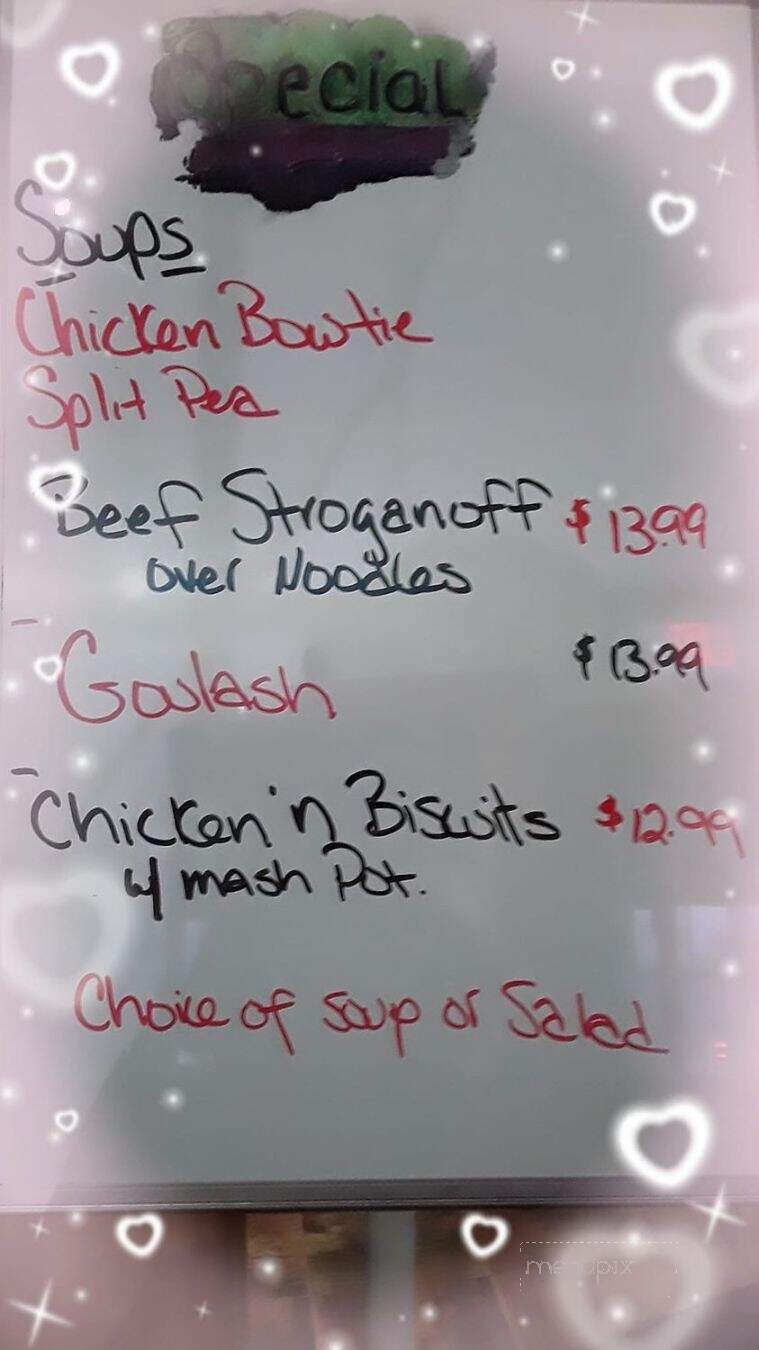 Special
Soups
Chicken Bowtie
Split Pea
Beef Stroganoff $13.99
over Noodles
Goulash $13.99
Chicken 'n Biscuits $12.99
w/ mash Pot.
Choice of soup or Salad
menupix